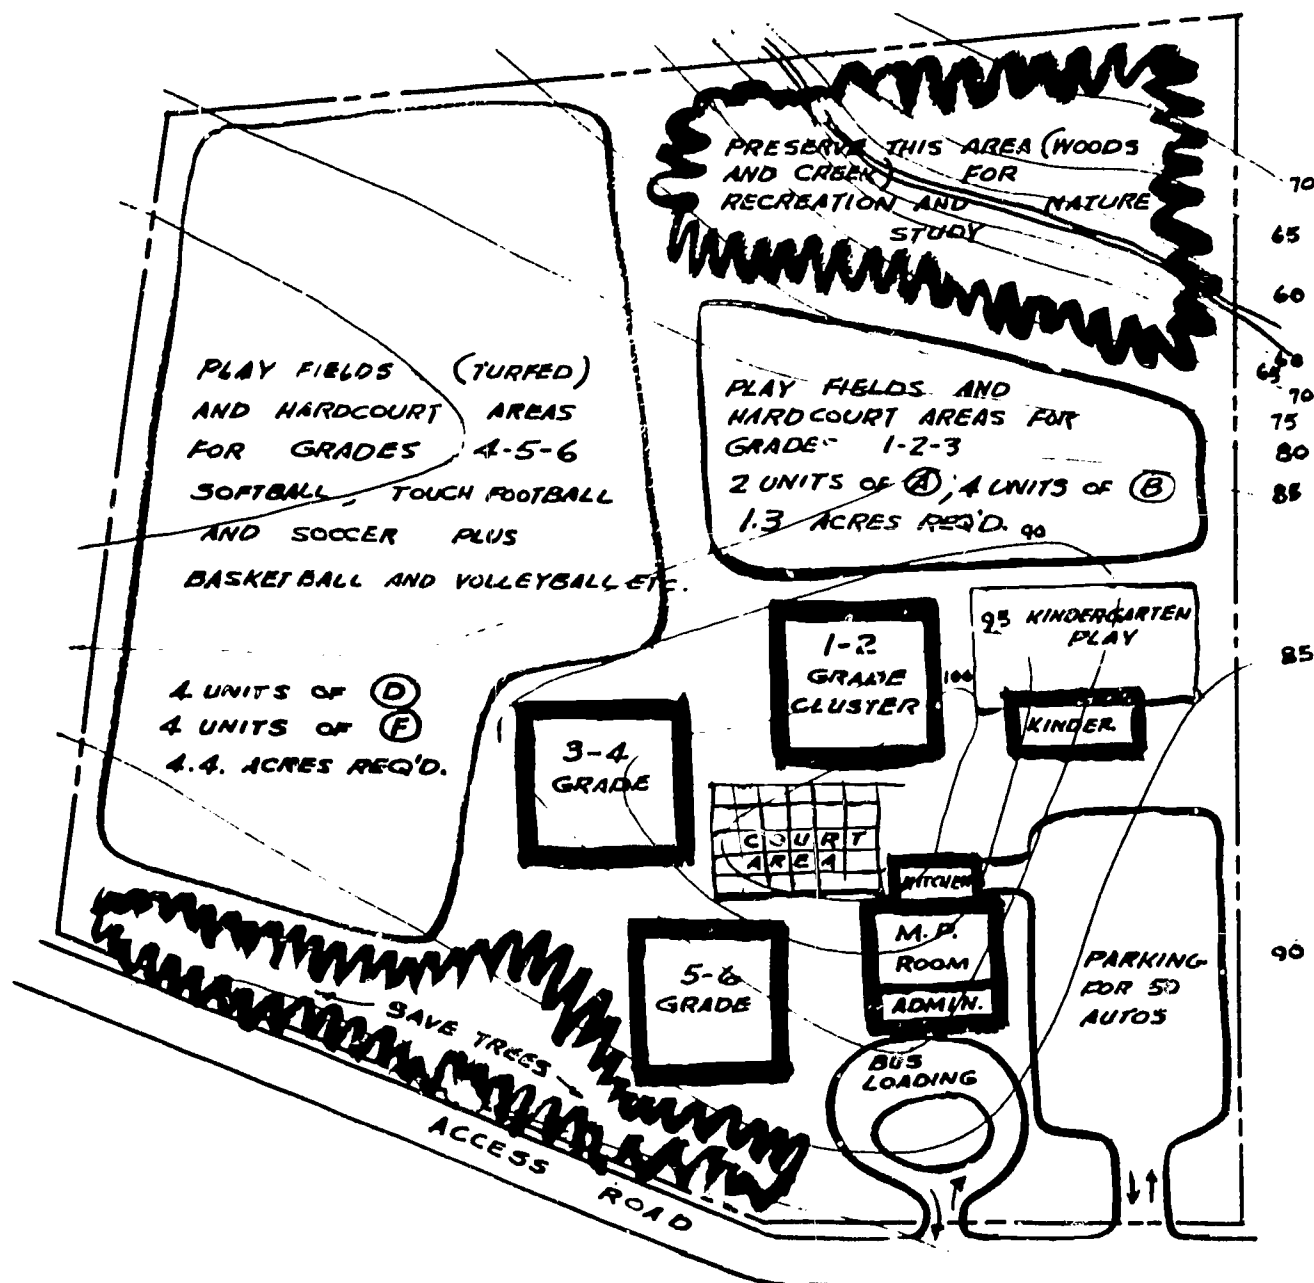 PRESERVE THIS AREA (WOODS
AND CREEK) FOR
RECREATION AND NATURE
STUDY
70
65
60
60
65
70
75
80
85
85
90
PLAY FIELDS (TURFED)
AND HARDCOURT AREAS
FOR GRADES 4-5-6
SOFTBALL, TOUCH FOOTBALL
AND SOCCER PLUS
BASKETBALL AND VOLLEYBALL ETC.
4 UNITS OF D
4 UNITS OF F
4.4. ACRES REQ'D.
PLAY FIELDS AND
HARDCOURT AREAS FOR
GRADE- 1-2-3
2 UNITS OF A; 4 UNITS OF B
1.3 ACRES REQ'D.
90
95
KINDERGARTEN
PLAY
100
KINDER.
1-2
GRADE
CLUSTER
3-4
GRADE
COURT
AREA
KITCHEN
M.P.
ROOM
ADMIN.
5-6
GRADE
PARKING
FOR 50
AUTOS
BUS
LOADING
SAVE TREES
ACCESS ROAD